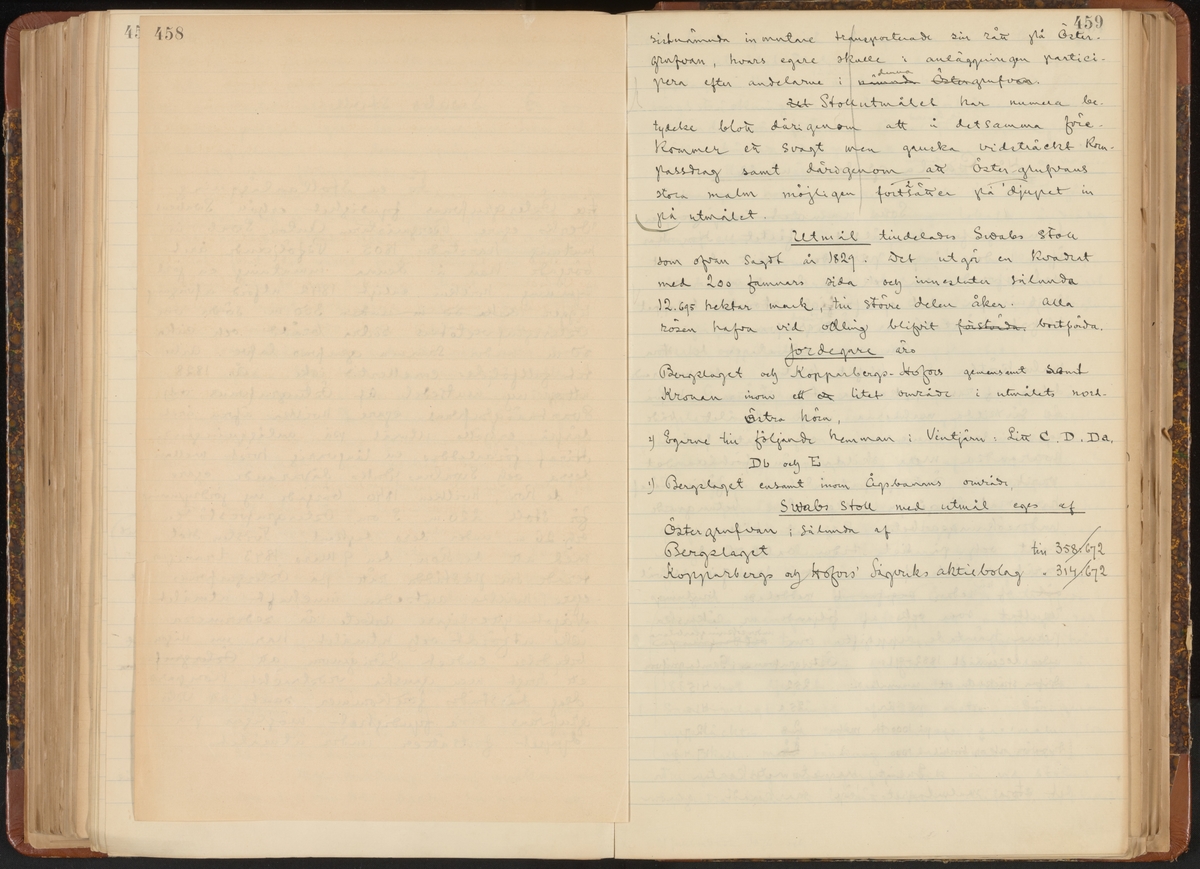 45
458
459
sistnämnda inmutare transporterade sin rätt på Öster-
grufvan, hvars egare skulle i anläggningen partici-
pera efter andelarne i nämnda denna Östergrufvan.
Det Stollutmålet har numera be-
tydelse blott därigenom att å detsamma före-
kommer ett svagt men ganska vidsträckt kom-
passdrag samt därigenom att Östergrufvans
stora malm möjligen fortsätter på djupet in
på utmålet.
Utmål tilldelades Swabs Stoll
som ofvan sagdt år 1829. Det utgör en kvadrat
med 200 famnars sida och innesluter sålunda
12.695 hektar mark, till större delen åker. Alla
rösen hafva vid odling blifvit förstörda. bortförda.
Jordegare äro
Bergslaget och Kopparbergs-Hofors gemensamt samt
Kronan inom ett litet område i utmålets nord-
östra hörn,
1) Egarne till följande hemman i Vintjärn: Litt C. D. Da,
Db och E
1) Bergslaget ensamt inom Ågsbanans område,
Swabs Stoll med utmål eges af
Östergrufvan; sålunda af
Bergslaget till 358/672
Kopparbergs och Hofors' Sågverks aktiebolag " 314/672